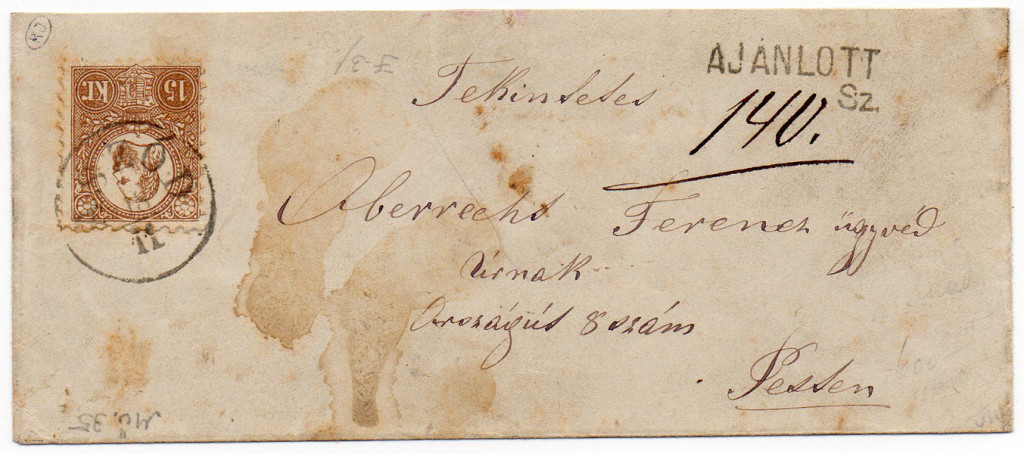 15 Kr
AJÁNLOTT
Sz.
140.
Tekintetes
Oberrecht Ferencz ügyvéd
Urnak
Országút 8 szám
Pesten
Mü.35